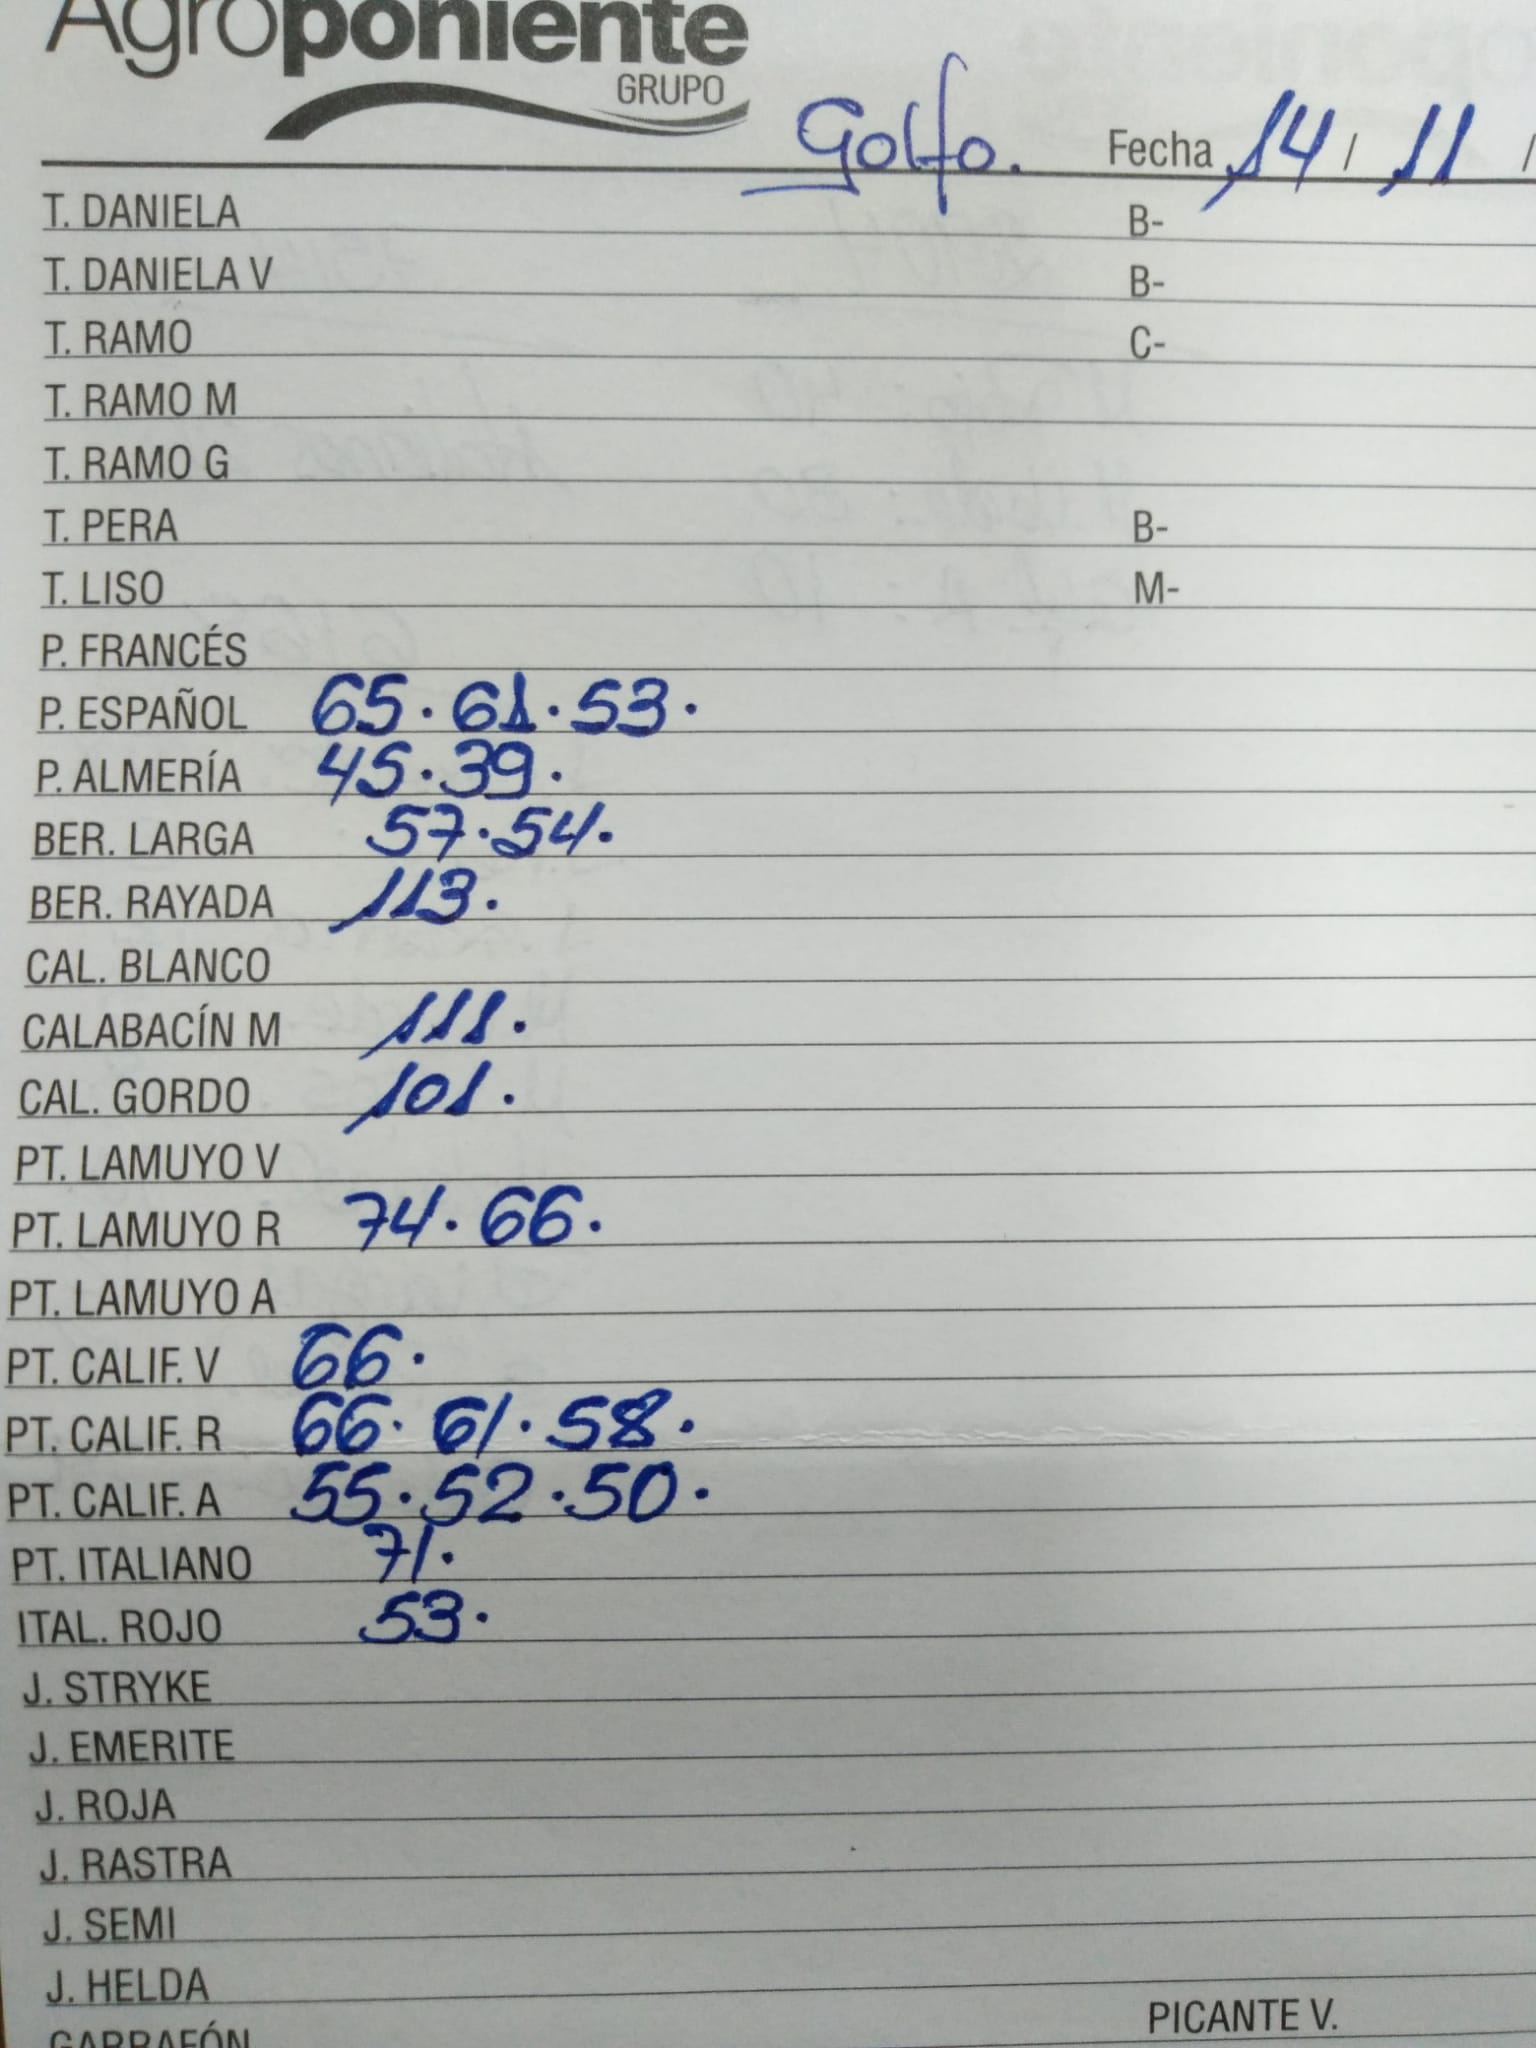 Agroponiente
GRUPO
Golfo. Fecha 14 / 11 /
T. DANIELA B-
T. DANIELA V B-
T. RAMO C-
T. RAMO M
T. RAMO G
T. PERA B-
T. LISO M-
P. FRANCÉS
P. ESPAÑOL 65. 61. 53.
P. ALMERÍA 45. 39.
BER. LARGA 57. 54.
BER. RAYADA 113.
CAL. BLANCO
CALABACÍN M 111.
CAL. GORDO 101.
PT. LAMUYO V
PT. LAMUYO R 74. 66.
PT. LAMUYO A
PT. CALIF. V 66.
PT. CALIF. R 66. 61. 58.
PT. CALIF. A 55. 52. 50.
PT. ITALIANO 71.
ITAL. ROJO 53.
J. STRYKE
J. EMERITE
J. ROJA
J. RASTRA
J. SEMI
J. HELDA
GARRAFÓN PICANTE V.